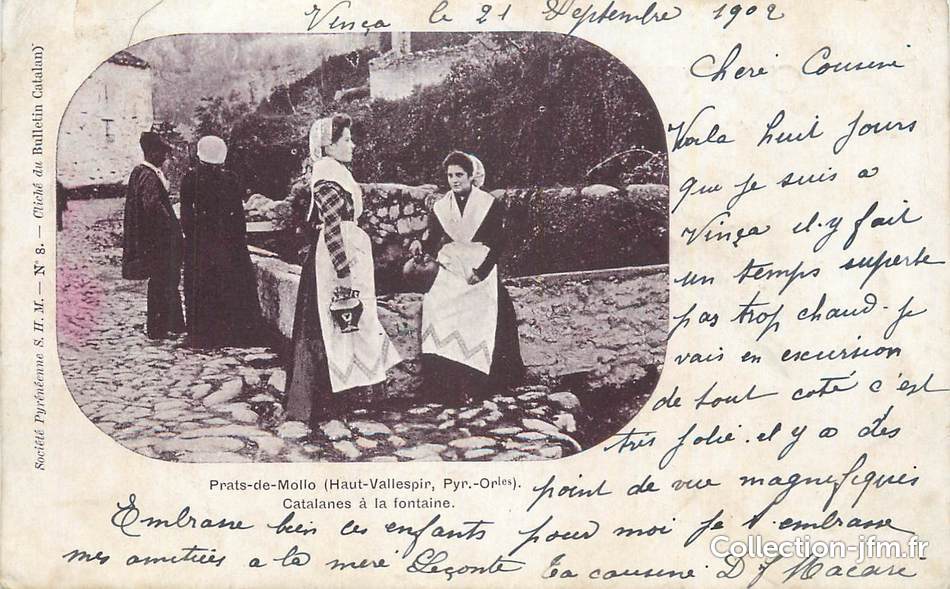 Vinça le 21 Septembre 1902
Cheré Cousine
Voila huit jours
que je suis a
Vinça il y fait
un temps superbe
pas trop chaud. je
vais en excursion
de tout coté c'est
tris joli. il y a des
point de vue magnifiques
Embrasse bien les enfants pour moi je t'embrasse
mes amitiés a la mere Leconte ta cousine D J Macare
Société Pyrénéenne S. H. M. — N° 8. — Cliché du Bulletin Catalan)
Prats-de-Mollo (Haut-Vallespir, Pyr.-Orles).
Catalanes à la fontaine.
Collection-jfm.fr